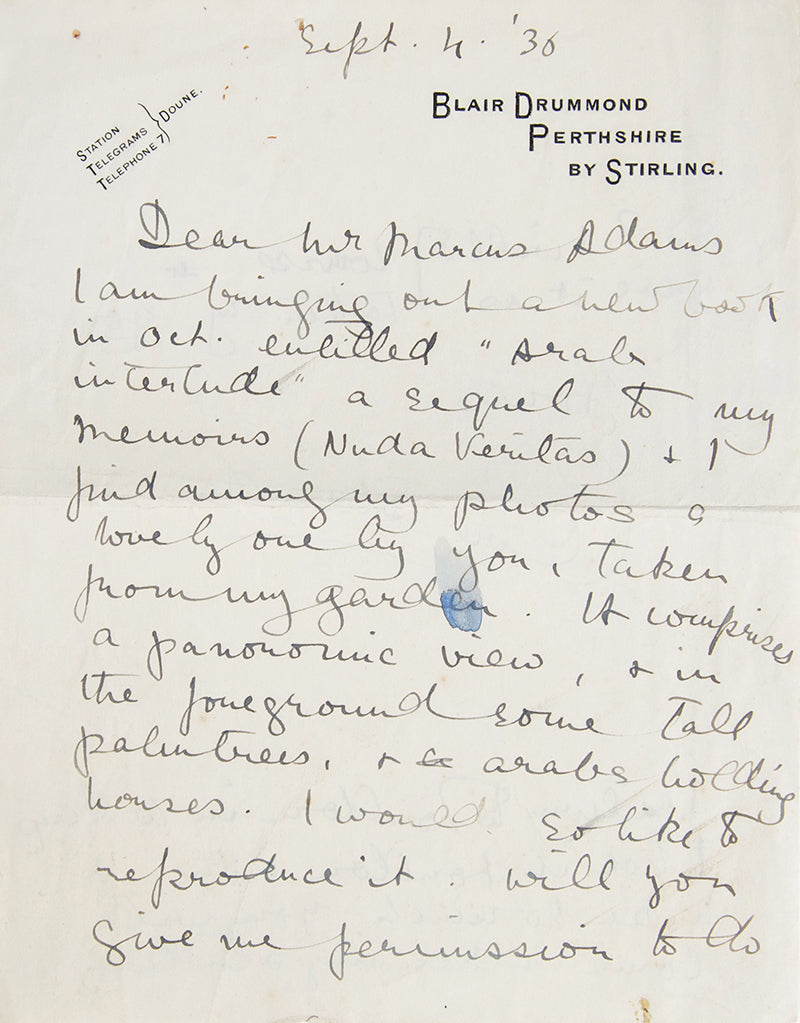 Sept. 4. '36
STATION
TELEGRAMS } DOUNE.
TELEPHONE 7
BLAIR DRUMMOND
PERTHSHIRE
BY STIRLING.
Dear Mr Marcus Adams
I am bringing out a new book
in Oct. entitled "Arab
interlude" a sequel to my
Memoirs (Nuda Veritas) & I
find among my photos a
lovely one by you, taken
from my garden. It comprises
a panoromic view, & in
the foreground some tall
palmtrees, & a arabs holding
horses. I would so like to
reproduce it. Will you
give me permission to do